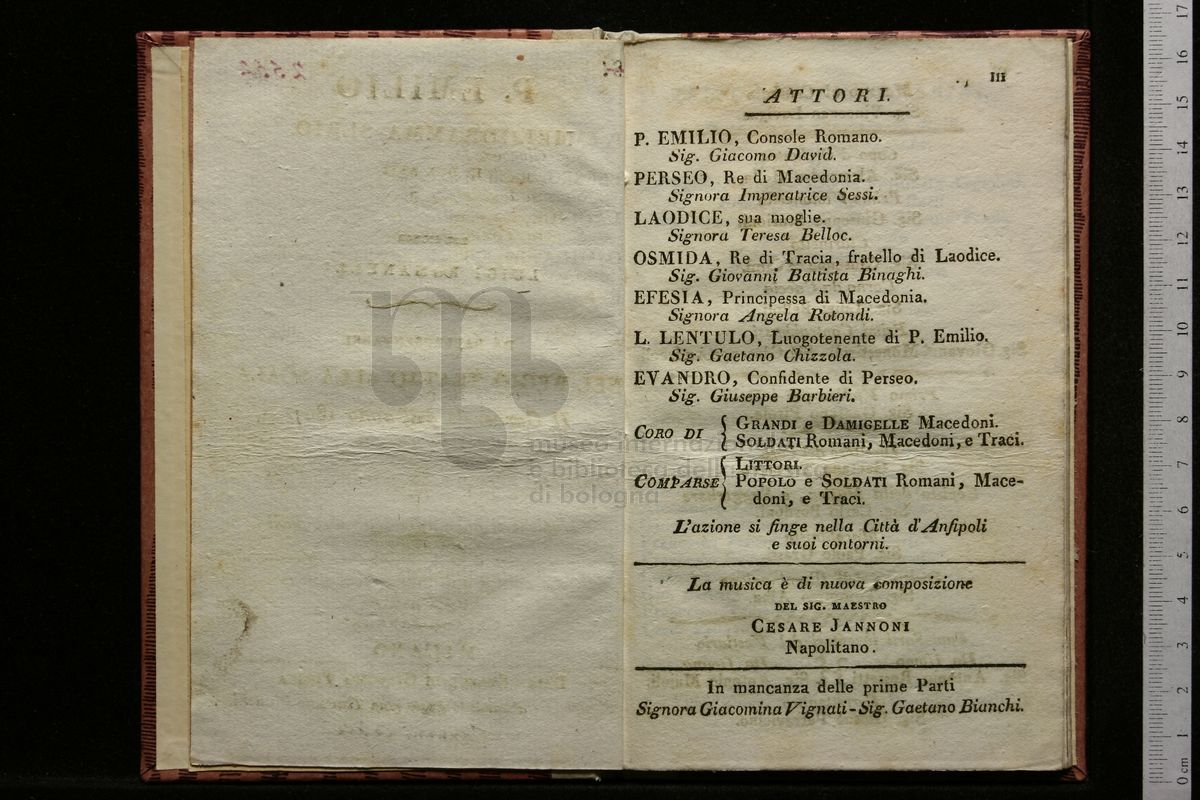 III
ATTORI.
P. EMILIO, Console Romano.
Sig. Giacomo David.
PERSEO, Re di Macedonia.
Signora Imperatrice Sessi.
LAODICE, sua moglie.
Signora Teresa Belloc.
OSMIDA, Re di Tracia, fratello di Laodice.
Sig. Giovanni Battista Binaghi.
EFESIA, Principessa di Macedonia.
Signora Angela Rotondi.
L. LENTULO, Luogotenente di P. Emilio.
Sig. Gaetano Chizzola.
EVANDRO, Confidente di Perseo.
Sig. Giuseppe Barbieri.
CORO DI { GRANDI e DAMIGELLE Macedoni.
SOLDATI Romani, Macedoni, e Traci.
COMPARSE { LITTORI.
POPOLO e SOLDATI Romani, Mace-
doni, e Traci.
L'azione si finge nella Città d'Anfipoli
e suoi contorni.
La musica è di nuova composizione
DEL SIG. MAESTRO
CESARE JANNONI
Napolitano.
In mancanza delle prime Parti
Signora Giacomina Vignati - Sig. Gaetano Bianchi.
museo internazionale
e biblioteca della musica
di bologna
0 cm 1 2 3 4 5 6 7 8 9 10 11 12 13 14 15 16 17